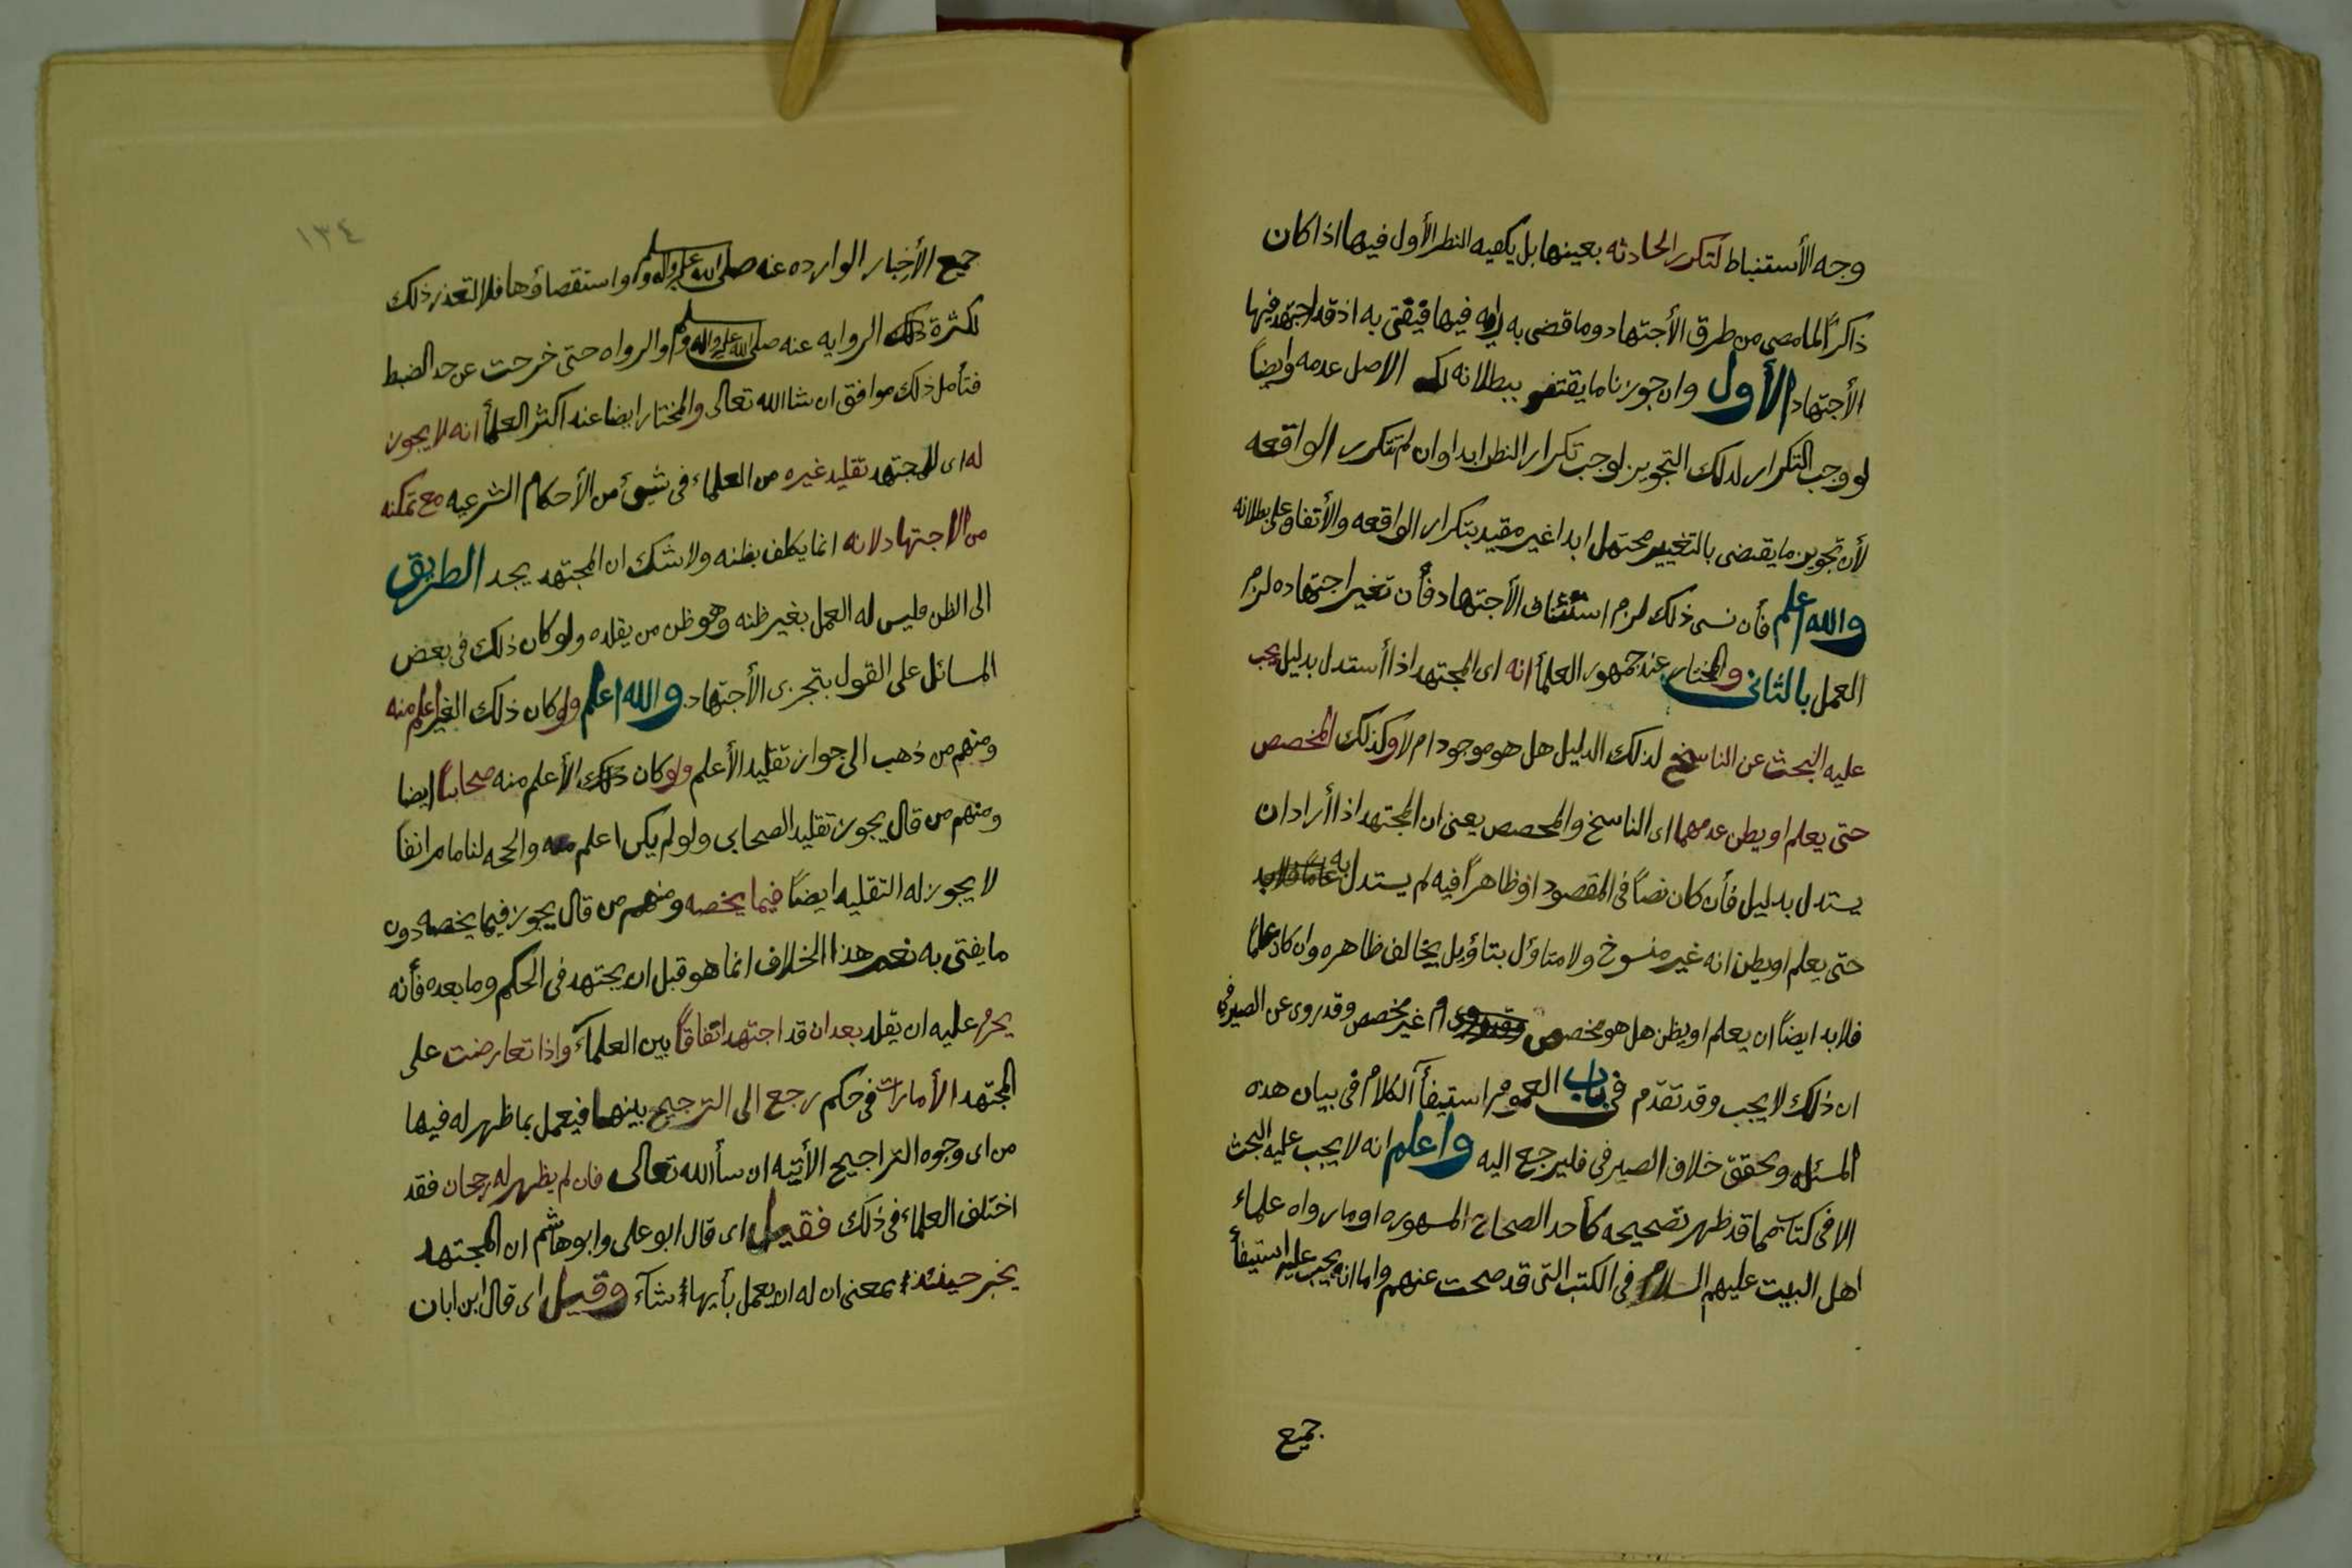 وجه الأستنباط لتكرر الحادثه بعينها بل يكفيه النظر الأول فيها اذا كان
ذاكراً لما مضى من طرق الأجتهاد وما قضى به رايه فيها فيفتى به اذ قد اجتهد فيها
الأجتهاد الأول وان جوزنا ما يقتضى ببطلانه لكن الاصل عدمه وايضاً
لو وجب التكرار لذلك التجويز لوجب تكرار النظر ابدا وان لم تتكرر الواقعه
لأن تجويز ما يقتضى بالتغيير محتمل ابدا غير مقيد بتكرار الواقعه والأتفاق على بطلانه
والله اعلم فأن نسى ذلك لزم استئناف الأجتهاد فأن تغير اجتهاده لزم
العمل بالثانى والمختار عند جمهور العلمأ انه اى المجتهد اذا أستدل بدليل يجب
عليه البحث عن الناسخ لذلك الدليل هل هو موجود ام لا وكذلك المخصص
حتى يعلم او يظن عدمهما اى الناسخ والمخصص يعنى ان المجتهد اذا أراد ان
يستدل بدليل فأن كان نصاً فى المقصود او ظاهراً فيه لم يستدل به
حتى يعلم او يظن انه غير منسوخ ولا متاؤل بتاؤيل يخالف ظاهره وان كان عاماً
فلابد ايضاً ان يعلم او يظن هل هو مخصص ام غير مخصص وقد روى عن الصيرفى
ان ذلك لا يجب وقد تقدّم فى باب العموم استيفأ الكلام فى بيان هذه
المسئله وتحقق خلاف الصيرفى فليرجع اليه واعلم انه لا يجب عليه البحث
الا فى كتاب مما قد ظهر تصحيحه كأحد الصحاح المشهوره او ما رواه علماء
اهل البيت عليهم السلام فى الكتب التى قد صحت عنهم واما انه يجب عليه استيفأ
جميع
١٣٤
جميع الأخبار الوارده عنه صلى الله عليه واله وسلم واستقصاؤها فلا لتعذر ذلك
لكثرة ذلك الروايه عنه صلى الله عليه واله وسلم والرواه حتى خرجت عن حد الضبط
فتأمل ذلك موافق ان شا الله تعالى والمختار ايضا عند اكثر العلمأ انه لا يجوز
له اى للمجتهد تقليد غيره من العلماء فى شىء من الأحكام الشرعيه مع تمكنه
من الاجتهاد لانه انما يكلف بظنه ولا شك ان المجتهد يجد الطريق
الى الظن فليس له العمل بغير ظنه وهو ظن من يقلده ولو كان ذلك فى بعض
المسائل على القول بتجزى الأجتهاد والله اعلم ولو كان ذلك الغير اعلم منه
ومنهم من ذهب الى جواز تقليد الأعلم ولو كان ذلك الأعلم منه صحابياً ايضا
ومنهم من قال يجوز تقليد الصحابى ولو لم يكن اعلم منه والحجه لنا ما مر انفاً
لا يجوز له التقليد ايضاً فيما يخصه ومنهم من قال يجوز فيما يخصه دون
ما يفتى به نعم هذا الخلاف انما هو قبل ان يجتهد فى الحكم وما بعده فأنه
يحرم عليه ان يقلد بعد ان قد اجتهد اتفاقاً بين العلمآء واذا تعارضت على
المجتهد الأمارات فى حكم رجع الى الترجيح بينهما فيعمل بما ظهر له فيها
من اى وجوه التراجيح الأتيه ان سأ الله تعالى فان لم يظهر له رجحان فقد
اختلف العلماء فى ذلك فقيل اى قال ابو على وابو هاشم ان المجتهد
يخير حينئذ بمعنى ان له ان يعمل بأيهما شآء وقيل اى قال ابن ابان